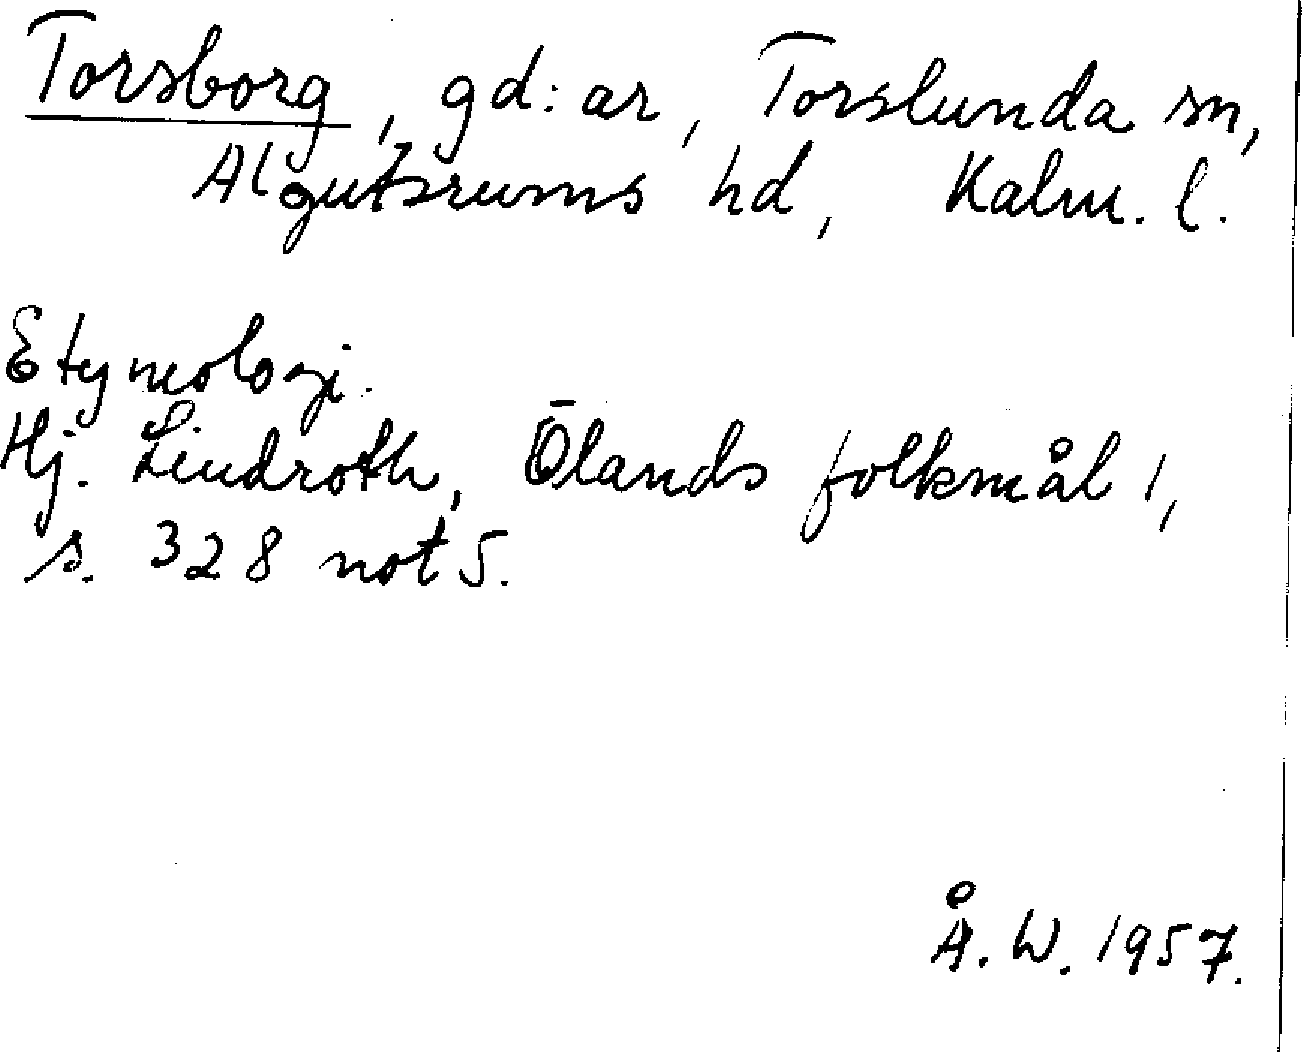 Torsborg, gd:ar, Torslunda sn,
Algutsrums hd, Kalm. l.
Etymologi.
Hj. Lindroth, Ölands folkmål 1,
s. 328 not 5.
Å. W. 1957.